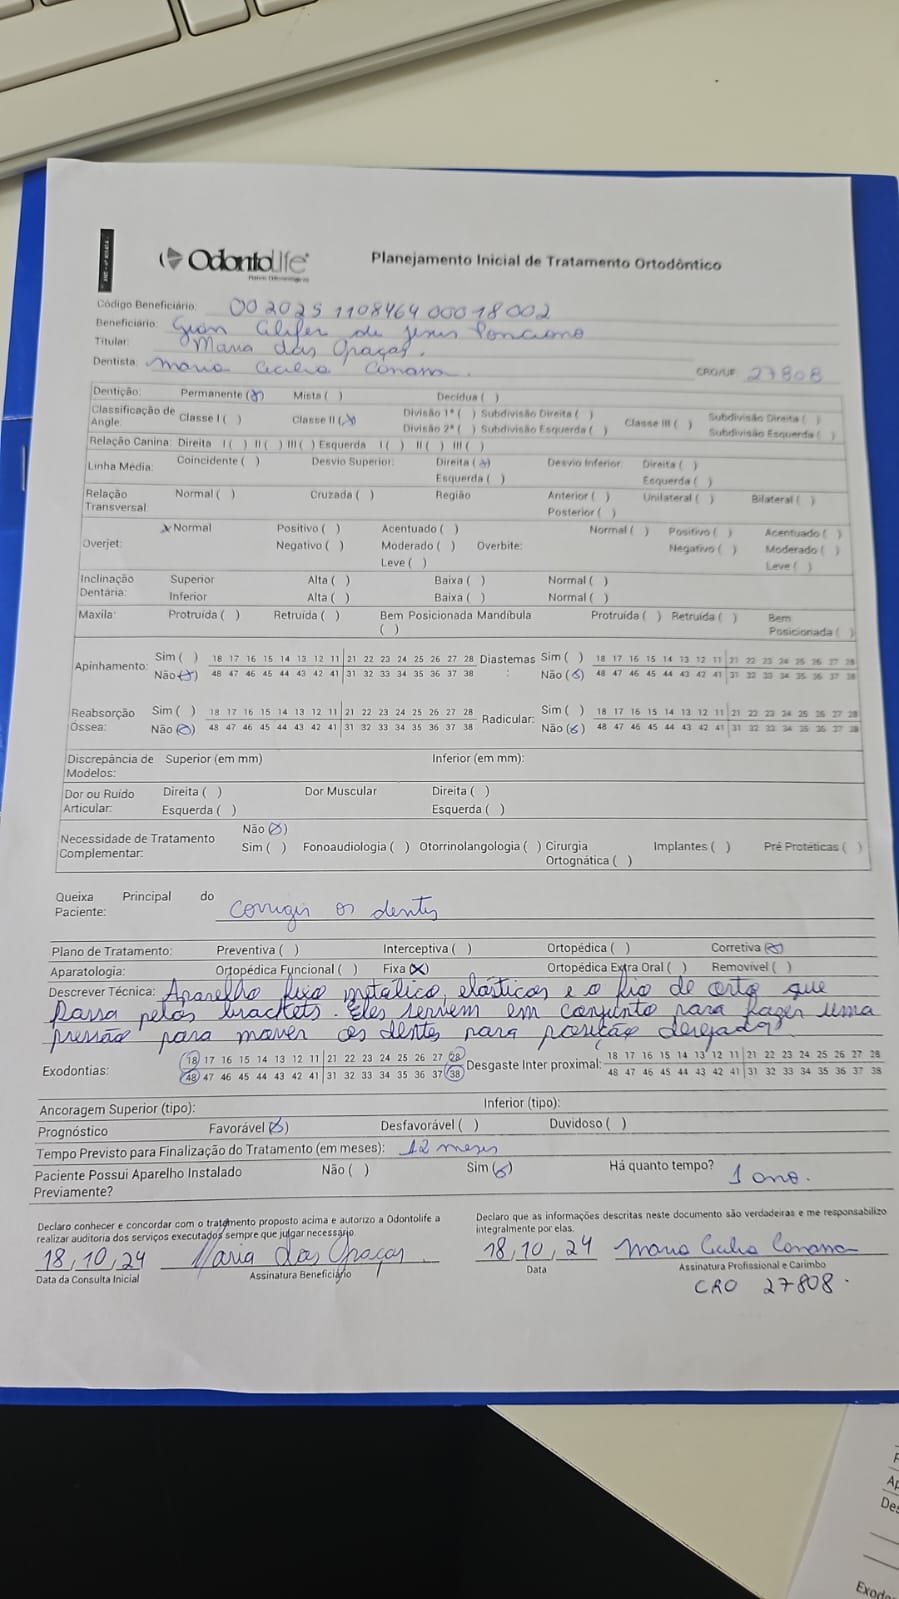 OdontoLife
Planejamento Inicial de Tratamento Ortodôntico
Código Beneficiário: 00 2025 1108464 00018 002
Beneficiário: de Jesus
Titular: Maria das Graças.
Dentista: Maria Cecilia CRO/UF: 27808
Dentição: Permanente (x) Mista ( ) Decídua ( )
Classificação de Angle: Classe I ( ) Classe II (x) Divisão 1ª ( ) Subdivisão Direita ( ) Classe III ( ) Subdivisão Direita ( )
Divisão 2ª ( ) Subdivisão Esquerda ( ) Subdivisão Esquerda ( )
Relação Canina: Direita I ( ) II ( ) III ( ) Esquerda I ( ) II ( ) III ( )
Linha Média: Coincidente ( ) Desvio Superior: Direita (x) Desvio Inferior: Direita ( )
Esquerda ( ) Esquerda ( )
Relação Transversal: Normal ( ) Cruzada ( ) Região Anterior ( ) Unilateral ( ) Bilateral ( )
Posterior ( )
Overjet: x Normal Positivo ( ) Acentuado ( ) Overbite: Normal ( ) Positivo ( ) Acentuado ( )
Negativo ( ) Moderado ( ) Negativo ( ) Moderado ( )
Leve ( ) Leve ( )
Inclinação Dentária: Superior Alta ( ) Baixa ( ) Normal ( )
Inferior Alta ( ) Baixa ( ) Normal ( )
Maxila: Protruída ( ) Retruída ( ) Bem Posicionada ( ) Mandíbula Protruída ( ) Retruída ( ) Bem Posicionada ( )
Apinhamento: Sim ( ) 18 17 16 15 14 13 12 11 21 22 23 24 25 26 27 28 Diastemas: Sim ( ) 18 17 16 15 14 13 12 11 21 22 23 24 25 26 27 28
Não (x) 48 47 46 45 44 43 42 41 31 32 33 34 35 36 37 38 Não (x) 48 47 46 45 44 43 42 41 31 32 33 34 35 36 37 38
Reabsorção Óssea: Sim ( ) 18 17 16 15 14 13 12 11 21 22 23 24 25 26 27 28 Radicular: Sim ( ) 18 17 16 15 14 13 12 11 21 22 23 24 25 26 27 28
Não (x) 48 47 46 45 44 43 42 41 31 32 33 34 35 36 37 38 Não (x) 48 47 46 45 44 43 42 41 31 32 33 34 35 36 37 38
Discrepância de Modelos: Superior (em mm) Inferior (em mm):
Dor ou Ruído Articular: Direita ( ) Dor Muscular Direita ( )
Esquerda ( ) Esquerda ( )
Necessidade de Tratamento Complementar: Não (x)
Sim ( ) Fonoaudiologia ( ) Otorrinolangologia ( ) Cirurgia Ortognática ( ) Implantes ( ) Pré Protéticas ( )
Queixa Principal do Paciente: corrigir os dentes
Plano de Tratamento: Preventiva ( ) Interceptiva ( ) Ortopédica ( ) Corretiva (x)
Aparatologia: Ortopédica Funcional ( ) Fixa (x) Ortopédica Extra Oral ( ) Removível ( )
Descrever Técnica: Aparelho fixo metálico, elásticos e o fio de orto que
passa pelos brackets. Eles servem em conjunto para fazer uma
pressão para mover os dentes para posição desejada
Exodontias: 18 17 16 15 14 13 12 11 21 22 23 24 25 26 27 28 Desgaste Inter proximal: 18 17 16 15 14 13 12 11 21 22 23 24 25 26 27 28
48 47 46 45 44 43 42 41 31 32 33 34 35 36 37 38 48 47 46 45 44 43 42 41 31 32 33 34 35 36 37 38
Ancoragem Superior (tipo): Inferior (tipo):
Prognóstico Favorável (x) Desfavorável ( ) Duvidoso ( )
Tempo Previsto para Finalização do Tratamento (em meses): 12 meses
Paciente Possui Aparelho Instalado Previamente? Não ( ) Sim (x) Há quanto tempo? 1 ano.
Declaro conhecer e concordar com o tratamento proposto acima e autorizo a Odontolife a
realizar auditoria dos serviços executados sempre que julgar necessário
Declaro que as informações descritas neste documento são verdadeiras e me responsabilizo
integralmente por elas.
18,10,24 Maria das Graças 18,10,24 Maria Cecilia
Data da Consulta Inicial Assinatura Beneficiário Data Assinatura Profissional e Carimbo
CRO 27808.
Exodo